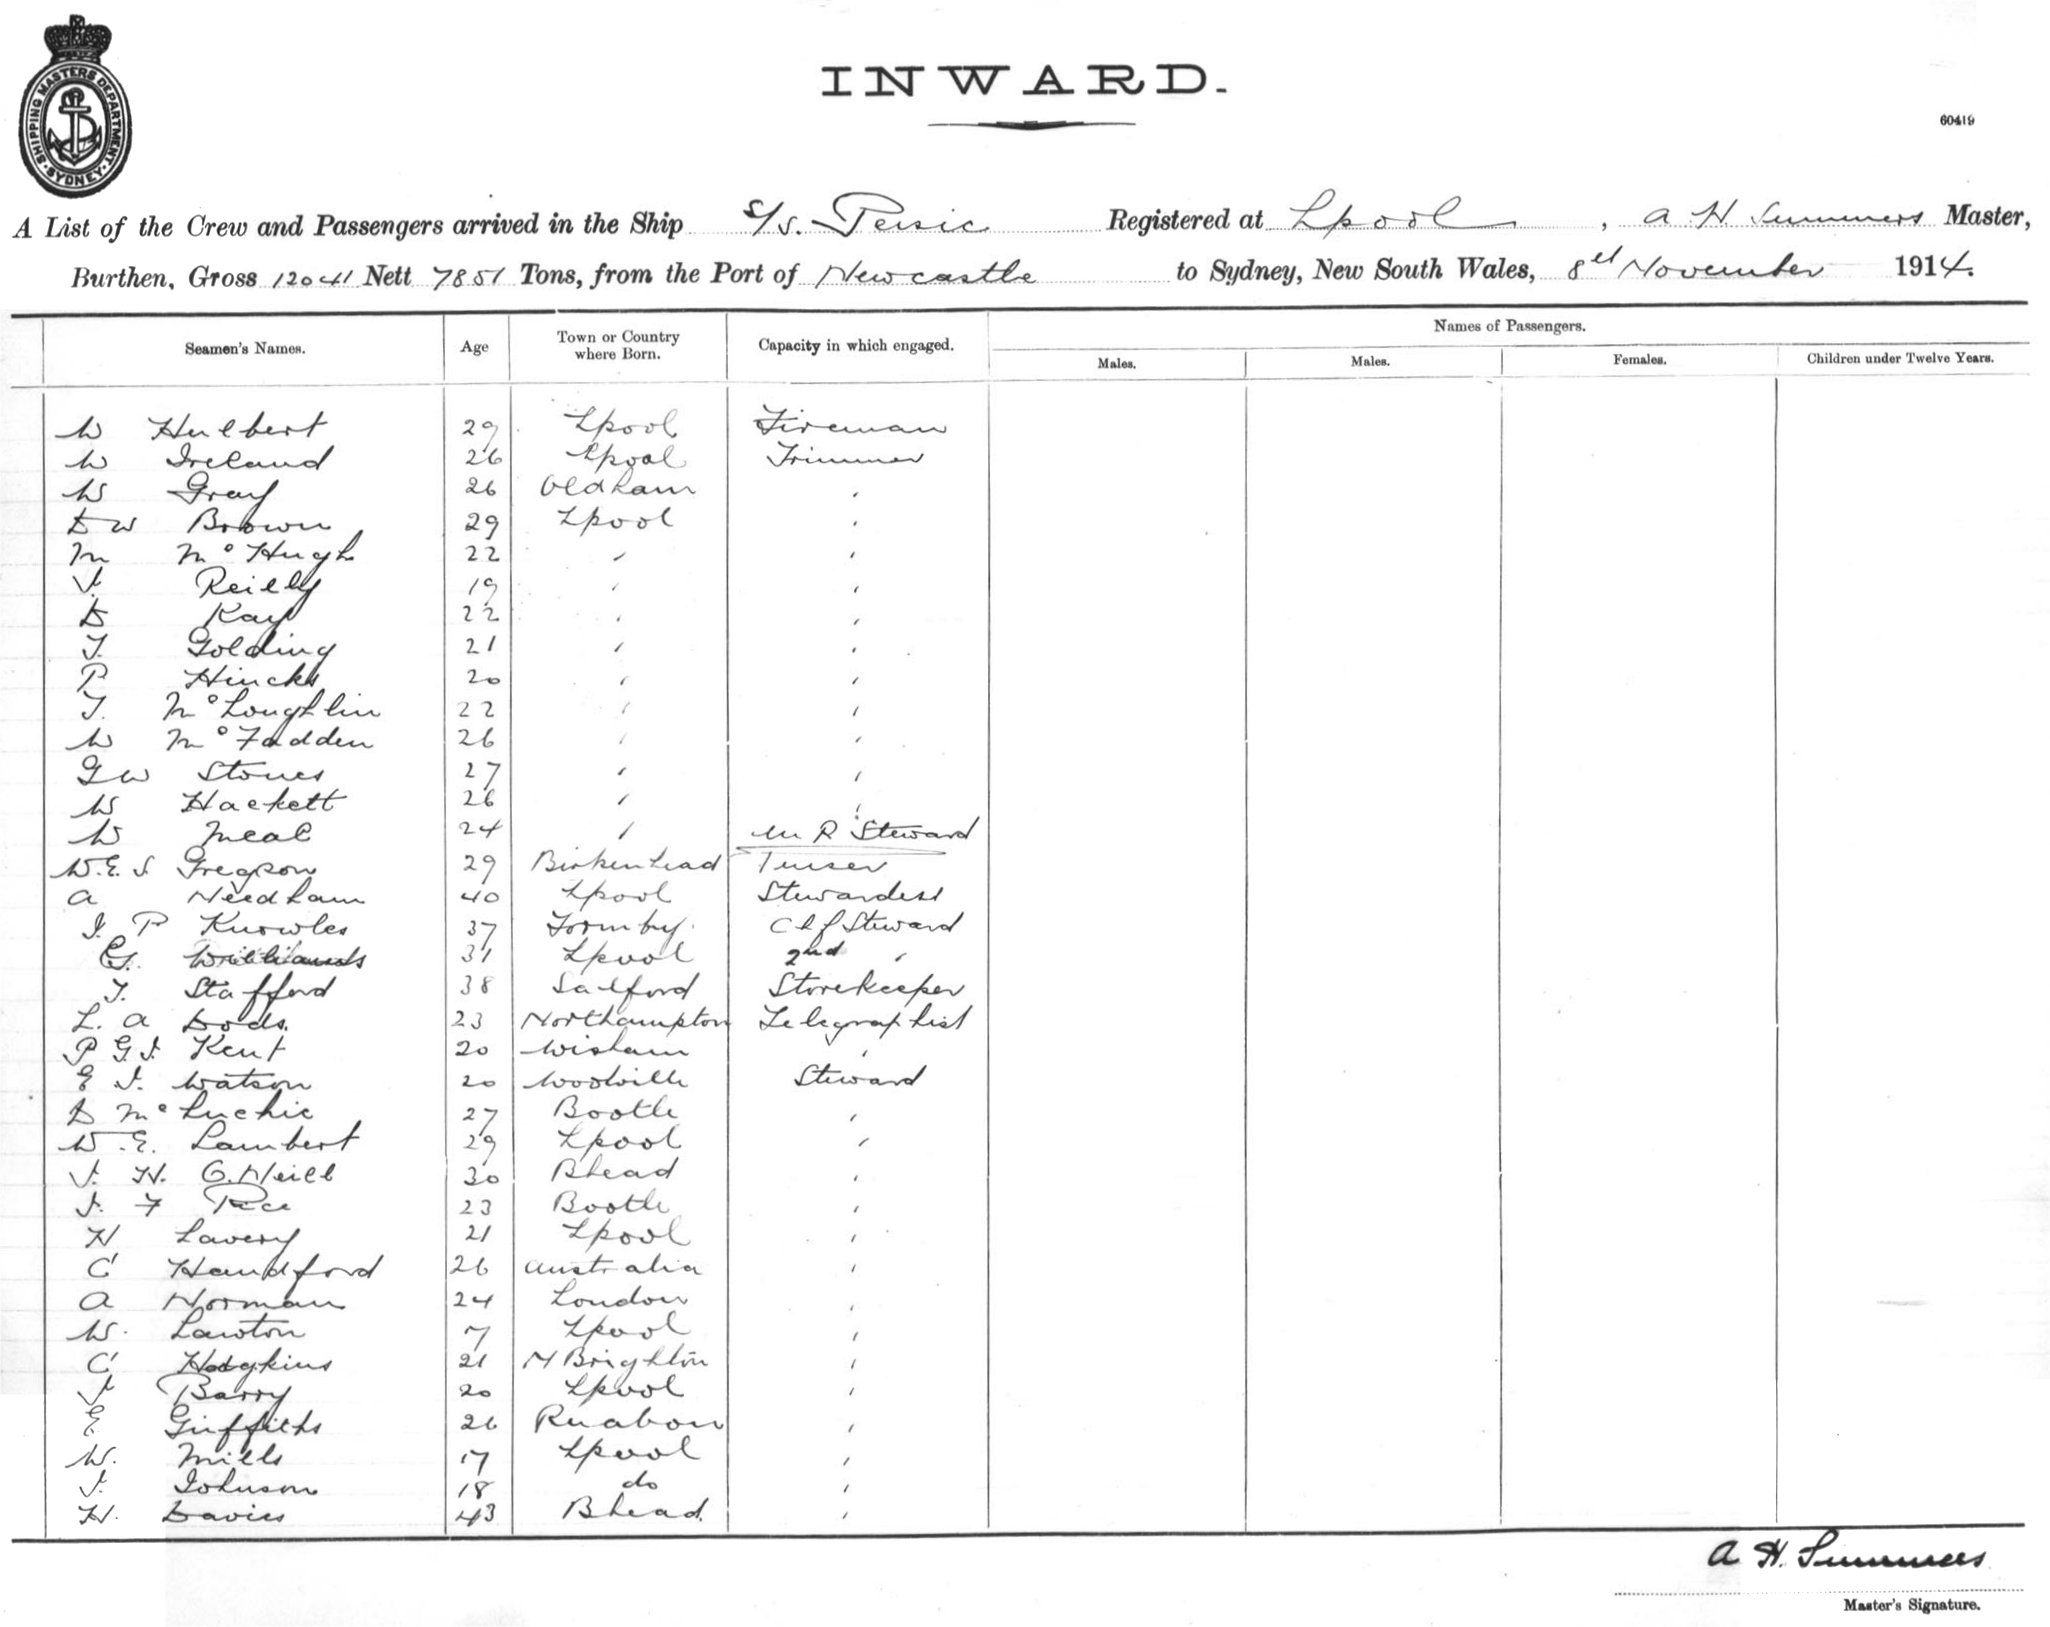 SHIPPING MASTERS DEPARTMENT. SYDNEY
INWARD.
60419
A List of the Crew and Passengers arrived in the Ship S/S. Persic Registered at Lpool, A H. Summers Master,
Burthen, Gross 12041 Nett 7851 Tons, from the Port of Newcastle to Sydney, New South Wales, 8th November 1914.
Seamen's Names. Age Town or Country where Born. Capacity in which engaged. Names of Passengers.
Males. Males. Females. Children under Twelve Years.
W Hulbert 29 Lpool Fireman
W Ireland 26 Lpool Trimmer
W Gray 26 Oldham "
D W Brown 29 Lpool "
M McHugh 22 " "
J. Reilly 19 " "
D Kay 22 " "
T. Golding 21 " "
P Hincks 20 " "
T. McLoughlin 22 " "
W McFadden 26 " "
G W Stones 27 " "
W Hackett 26 " "
W Meal 24 " M R Steward
W. E. S Gregson 29 Birkenhead Purser
A Needham 40 Lpool Stewardess
J. P Knowles 37 Formby. Chf Steward
G. Williams 31 Lpool 2nd "
T. Stafford 38 Salford Storekeeper
L. A Dods. 23 Northampton Telegraphist
P G. J. Kent 20 Wisham "
E J. Watson 20 Woolville Steward
D McLuchie 27 Bootle "
W. E. Lambert 29 Lpool "
J. H. O.Neill 30 Bhead "
J. F Rce 23 Bootle "
H Lavery 21 Lpool "
C Handford 26 Australia "
A Norman 24 London "
W. Lawton 17 Lpool "
C Hodgkins 21 N Brighton "
J Barry 20 Lpool "
E Griffiths 26 Ruabon "
W. Mills 17 Lpool "
J. Johnson 18 do "
H. Davies 43 Bhead. "
A H. Summers
Master's Signature.